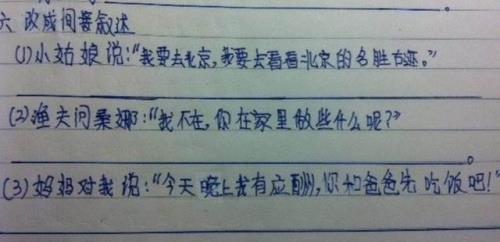 六 改成间接叙述
(1)小姑娘说:“我要去北京,我要去看看北京的名胜古迹。”
。
(2)渔夫问桑娜:“我不在,你在家里做些什么呢?”
。
(3)妈妈对我说:“今天晚上我有应酬,你和爸爸先吃饭吧!”